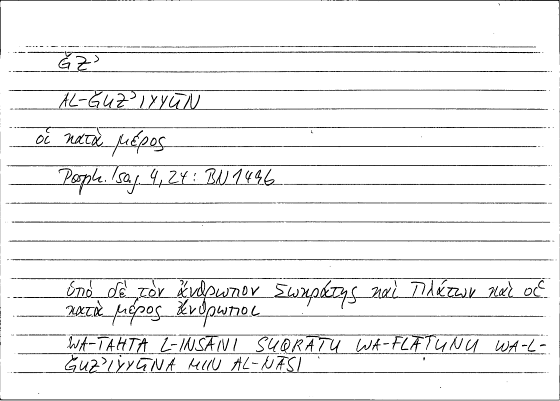 ǦZʾ
AL-ǦUZʾIYYŪN
οἱ κατὰ μέρος
Porph. Isag. 4,24: BN 1496
ὑπὸ δὲ τὸν ἄνθρωπον Σωκράτης καὶ Πλάτων καὶ οἱ
κατὰ μέρος ἄνθρωποι
WA-TAḤTA L-INSĀNI SUQRĀṬU WA-FLĀṬUNU WA-L-
ǦUZʾIYYŪNA MIN AL-NĀSI